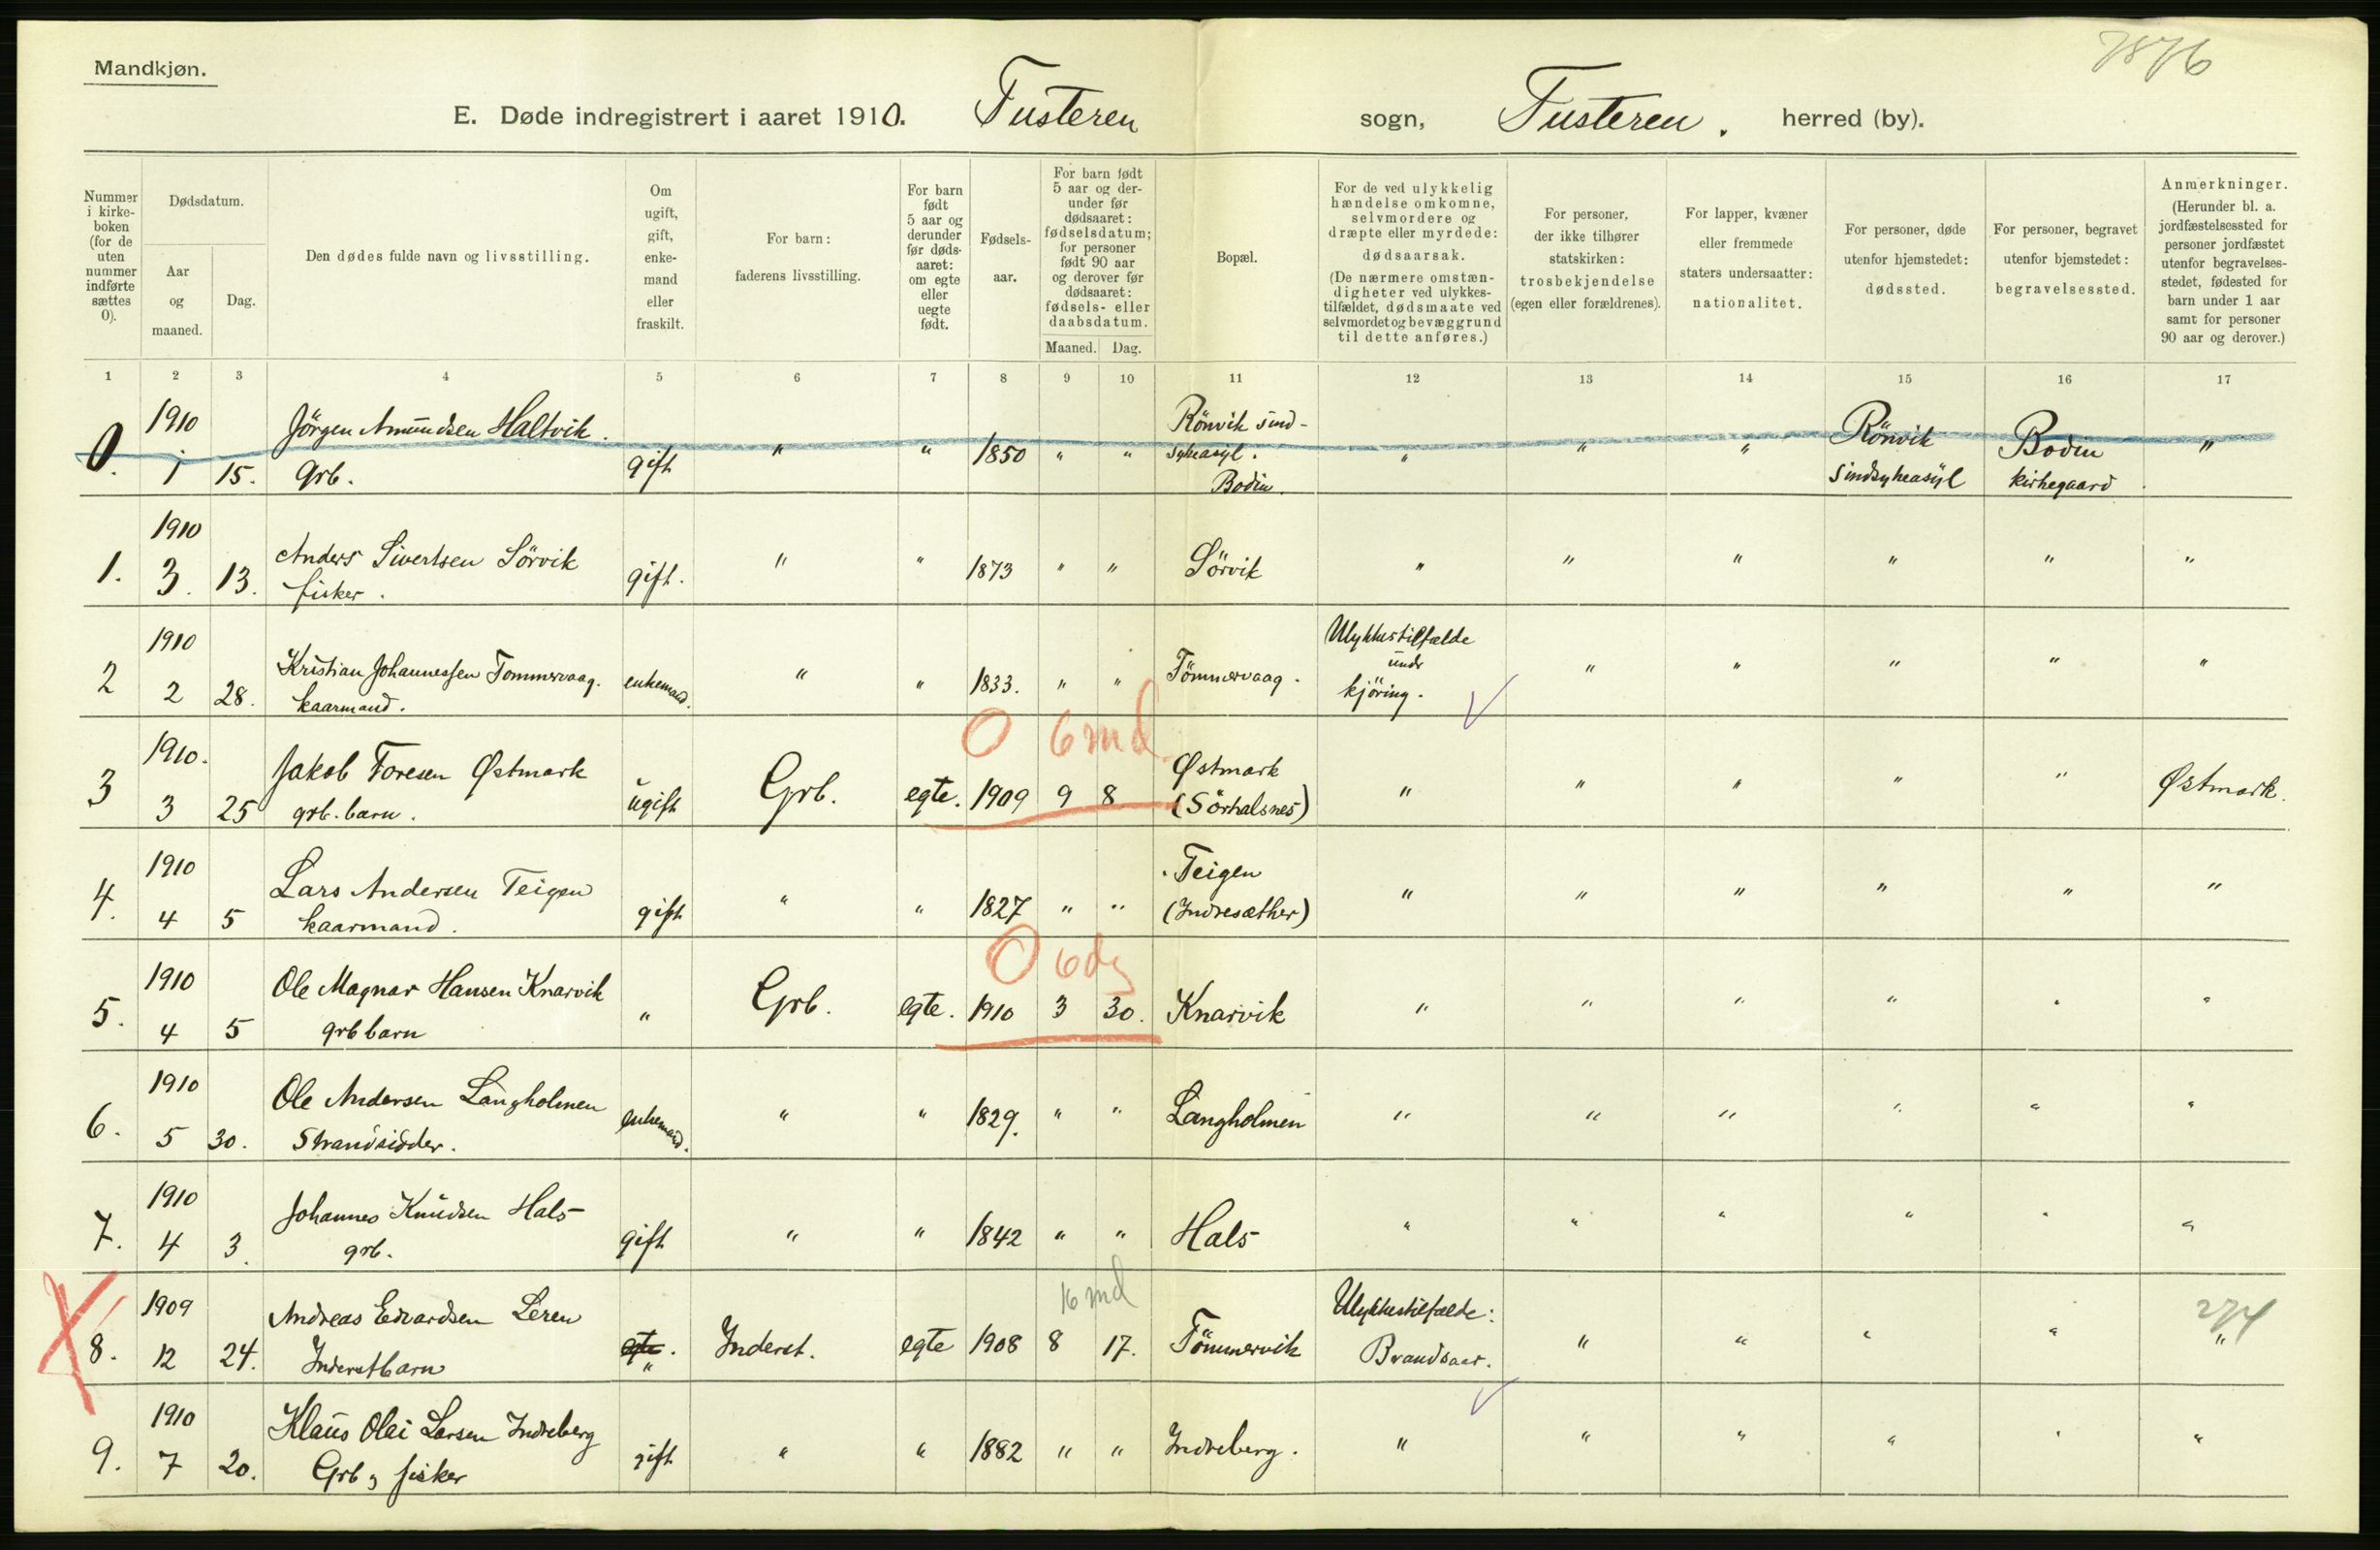 Mandkjøn.
7876
E. Døde indregistrert i aaret 1910. Tusteren sogn, Tusteren. herred (by).
Nummer i kirke-boken (for de uten nummer indførte sættes 0).
Dødsdatum.
Aar og maaned.
Dag.
Den dødes fulde navn og livsstilling.
Om ugift, gift, enke-mand eller fraskilt.
For barn: faderens livsstilling.
For barn født 5 aar og derunder før døds-aaret: om egte eller uegte født.
Fødsels-aar.
For barn født 5 aar og der-under før dødsaaret: fødselsdatum; for personer født 90 aar og derover før dødsaaret: fødsels- eller daabsdatum.
Maaned. Dag.
Bopæl.
For de ved ulykkelig hændelse omkomne, selvmordere og dræpte eller myrdede: dødsaarsak. (De nærmere omstæn-digheter ved ulykkes-tilfældet, dødsmaate ved selvmordet og bevæggrund til dette anføres.)
For personer, der ikke tilhører statskirken: trosbekjendelse (egen eller forældrenes).
For lapper, kvæner eller fremmede staters undersaatter: nationalitet.
For personer, døde utenfor hjemstedet: dødssted.
For personer, begravet utenfor bjemstedet: begravelsessted.
Anmerkninger. (Herunder bl. a. jordfæstelsessted for personer jordfæstet utenfor begravelses-stedet, fødested for barn under 1 aar samt for personer 90 aar og derover.)
1 2 3 4 5 6 7 8 9 10 11 12 13 14 15 16 17
0. 1910 1 15. Jörgen Amundsen Haltvik. Grb. gift " " 1850 " " Rönvik sind-sykeasyl. Bodin. " " " Rönvik Sindsykeasyl Bodin kirkegaard "
1. 1910 3. 13. Anders Sivertsen Sörvik fisker. gift. " " 1873 " " Sörvik " " " " " "
2 1910 2 28. Kristian Johannessen Tommervaag. kaarmand. enkemand. " " 1833. " " Tömmervaag. Ulykkestilfælde undr kjöring. " " " " "
O 6 md
3 1910. 3 25 Jakob Toresen Østmark grb. barn. ugift Grb. egte. 1909 9 8 Østmark (Sörhalsnes) " " " " " Østmark.
4. 1910 4 5 Lars Andersen Teigen kaarmand. gift " " 1827 " " Teigen (Indresæther) " " " " " "
O 6 dg
5. 1910 4 5 Ole Magnar Hansen Knarvik grb barn " Grb. egte. 1910 3 30. Knarvik " " " " " "
6. 1910 5 30. Ole Andersen Langholmen Strandsidder. enkemand. " " 1829. " " Langholmen " " " " " "
7. 1910 4 3. Johannes Knudsen Hals grb. gift " " 1842 " " Hals " " " " " "
16 md
8. 1909 12 24. Andreas Edvardsen Leren Inderstbarn egte. " Inderst. egte 1908 8 17. Tömmervik Ulykkestilfælde: Brandsaar. " " " " 274 "
9. 1910 7 20. Klaus Olai Larsen Indreberg Grb og fisker gift " " 1882 " " Indreberg. " " " " " "